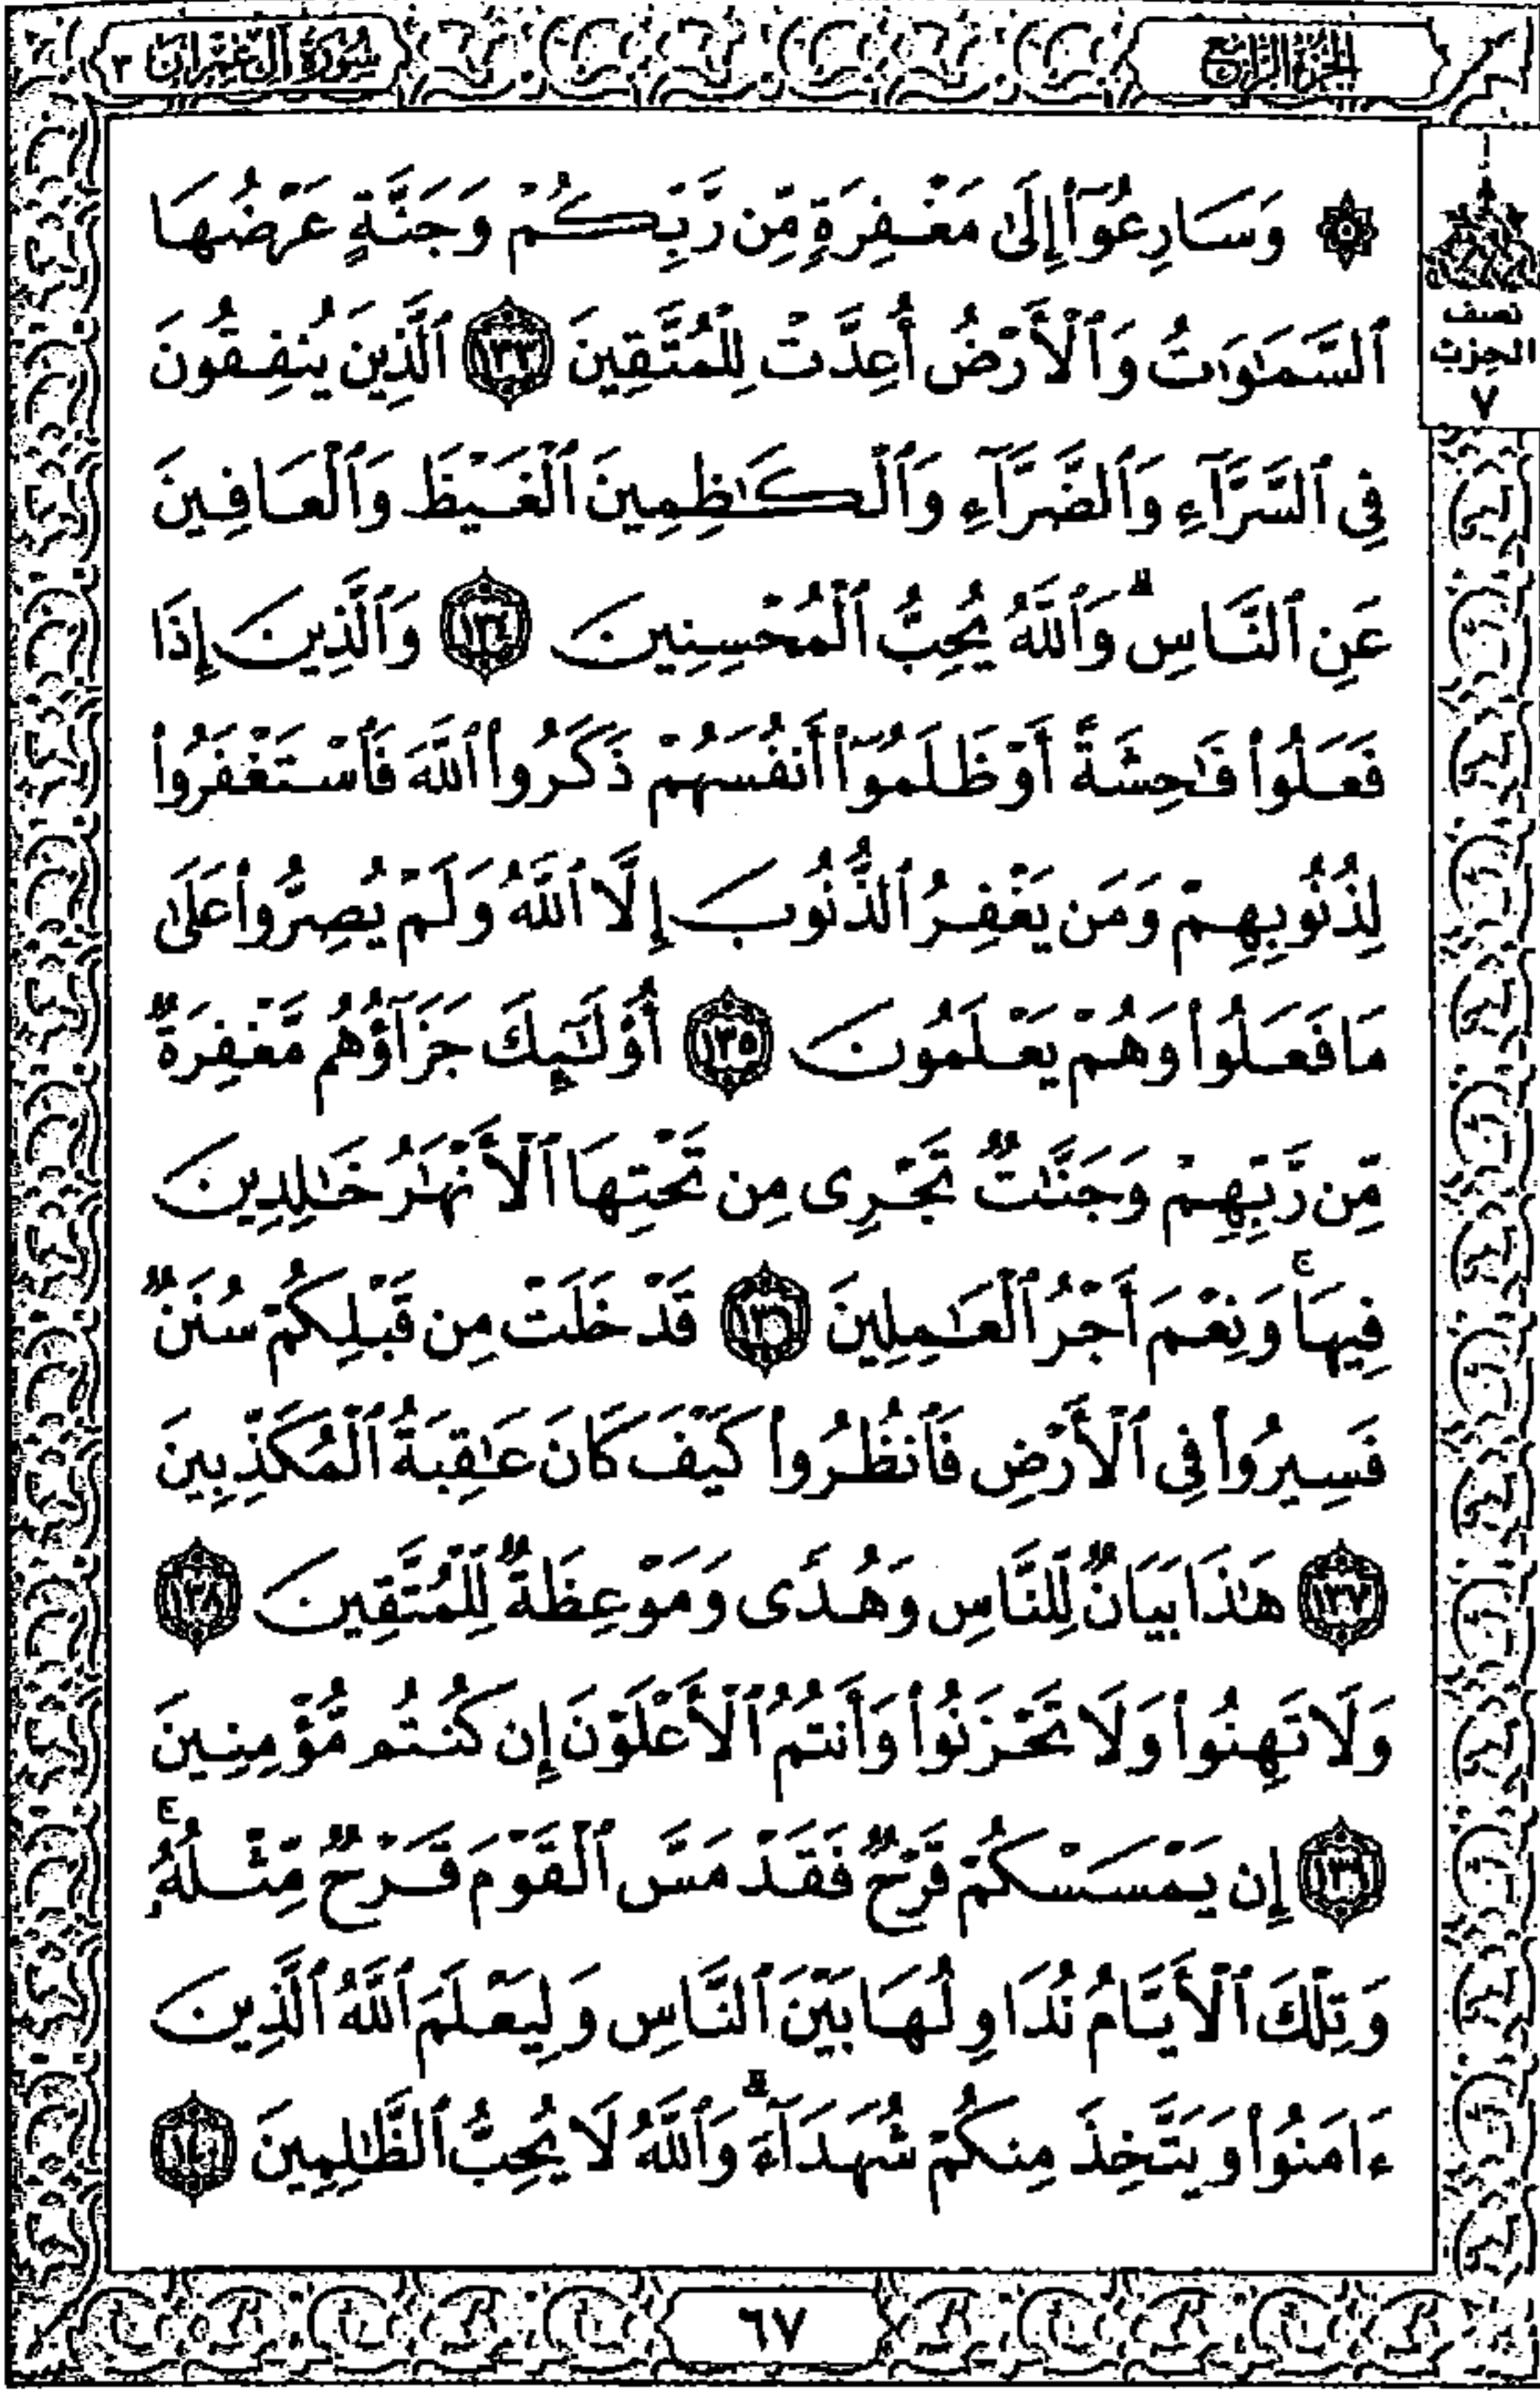 سُورَةُ آلِ عِمْرَانَ ٣
الجُزْءُ الرَّابِعُ
نصف
الحزب
٧
۞ وَسَارِعُوٓا۟ إِلَىٰ مَغْفِرَةٍ مِّن رَّبِّكُمْ وَجَنَّةٍ عَرْضُهَا
ٱلسَّمَـٰوَٰتُ وَٱلْأَرْضُ أُعِدَّتْ لِلْمُتَّقِينَ ١٣٣ ٱلَّذِينَ يُنفِقُونَ
فِى ٱلسَّرَّآءِ وَٱلضَّرَّآءِ وَٱلْكَـٰظِمِينَ ٱلْغَيْظَ وَٱلْعَافِينَ
عَنِ ٱلنَّاسِ ۗ وَٱللَّهُ يُحِبُّ ٱلْمُحْسِنِينَ ١٣٤ وَٱلَّذِينَ إِذَا
فَعَلُوا۟ فَـٰحِشَةً أَوْ ظَلَمُوٓا۟ أَنفُسَهُمْ ذَكَرُوا۟ ٱللَّهَ فَٱسْتَغْفَرُوا۟
لِذُنُوبِهِمْ وَمَن يَغْفِرُ ٱلذُّنُوبَ إِلَّا ٱللَّهُ وَلَمْ يُصِرُّوا۟ عَلَىٰ
مَا فَعَلُوا۟ وَهُمْ يَعْلَمُونَ ١٣٥ أُو۟لَـٰٓئِكَ جَزَآؤُهُم مَّغْفِرَةٌ
مِّن رَّبِّهِمْ وَجَنَّـٰتٌ تَجْرِى مِن تَحْتِهَا ٱلْأَنْهَـٰرُ خَـٰلِدِينَ
فِيهَا ۚ وَنِعْمَ أَجْرُ ٱلْعَـٰمِلِينَ ١٣٦ قَدْ خَلَتْ مِن قَبْلِكُمْ سُنَنٌ
فَسِيرُوا۟ فِى ٱلْأَرْضِ فَٱنظُرُوا۟ كَيْفَ كَانَ عَـٰقِبَةُ ٱلْمُكَذِّبِينَ
١٣٧ هَـٰذَا بَيَانٌ لِّلنَّاسِ وَهُدًى وَمَوْعِظَةٌ لِّلْمُتَّقِينَ ١٣٨
وَلَا تَهِنُوا۟ وَلَا تَحْزَنُوا۟ وَأَنتُمُ ٱلْأَعْلَوْنَ إِن كُنتُم مُّؤْمِنِينَ
١٣٩ إِن يَمْسَسْكُمْ قَرْحٌ فَقَدْ مَسَّ ٱلْقَوْمَ قَرْحٌ مِّثْلُهُۥ ۚ
وَتِلْكَ ٱلْأَيَّامُ نُدَاوِلُهَا بَيْنَ ٱلنَّاسِ وَلِيَعْلَمَ ٱللَّهُ ٱلَّذِينَ
ءَامَنُوا۟ وَيَتَّخِذَ مِنكُمْ شُهَدَآءَ ۗ وَٱللَّهُ لَا يُحِبُّ ٱلظَّـٰلِمِينَ ١٤٠
٦٧